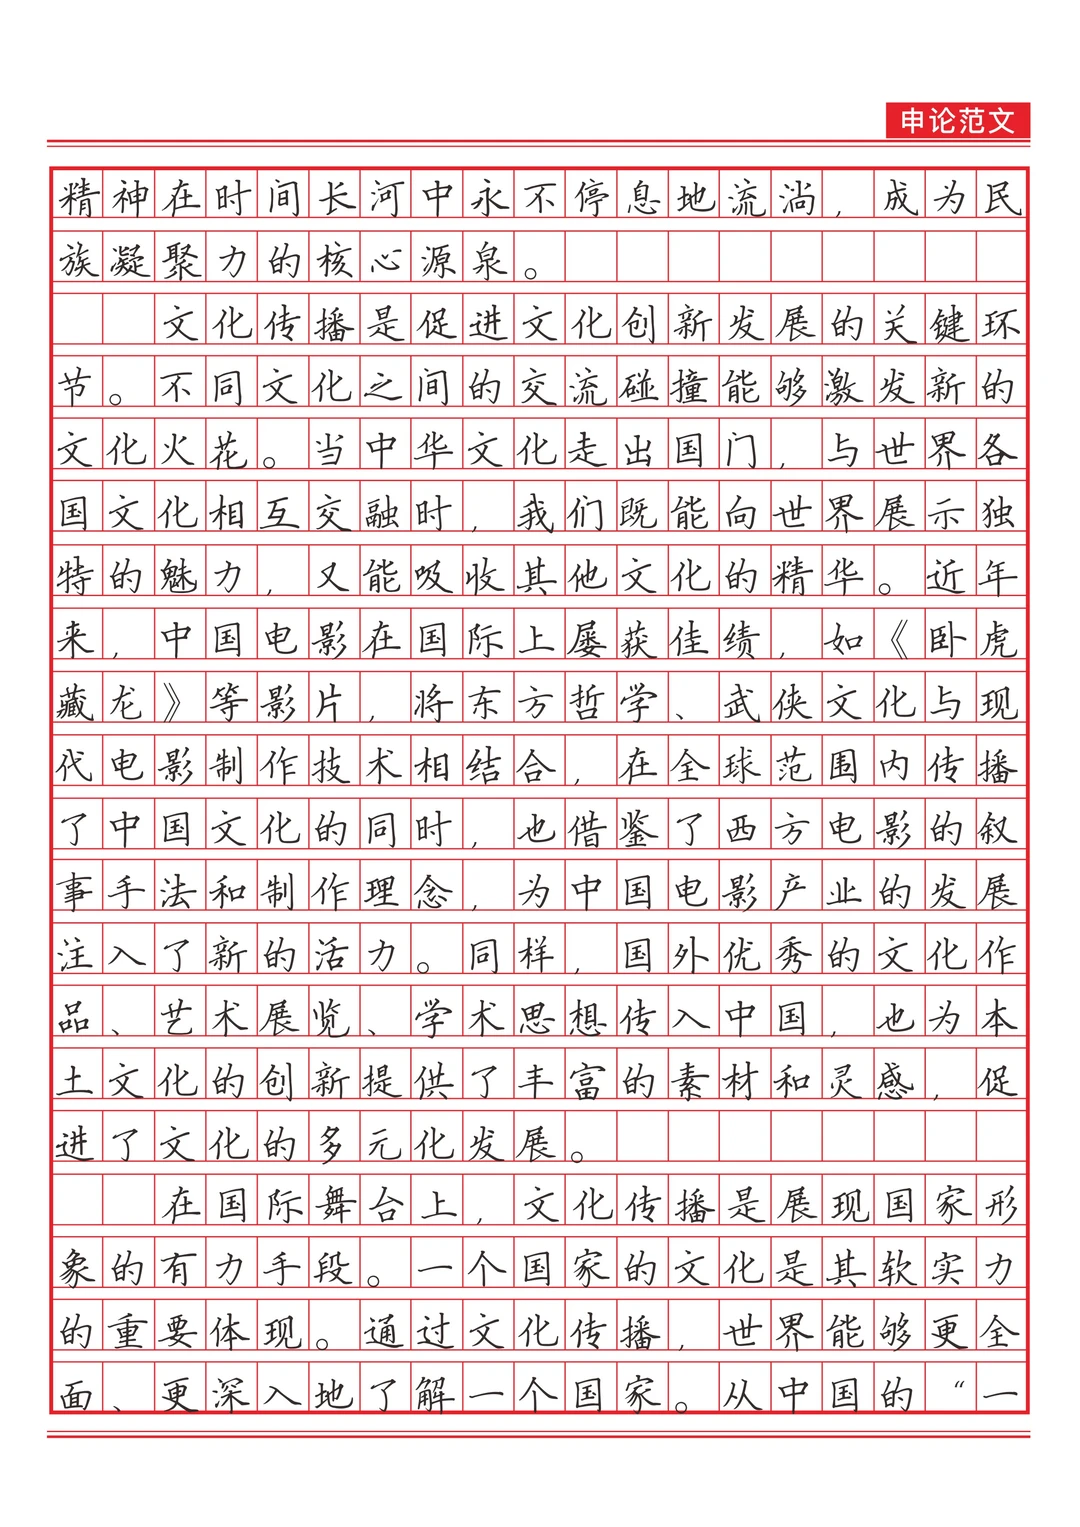 申论范文
精神在时间长河中永不停息地流淌，成为民
族凝聚力的核心源泉。
文化传播是促进文化创新发展的关键环
节。不同文化之间的交流碰撞能够激发新的
文化火花。当中华文化走出国门，与世界各
国文化相互交融时，我们既能向世界展示独
特的魅力，又能吸收其他文化的精华。近年
来，中国电影在国际上屡获佳绩，如《卧虎
藏龙》等影片，将东方哲学、武侠文化与现
代电影制作技术相结合，在全球范围内传播
了中国文化的同时，也借鉴了西方电影的叙
事手法和制作理念，为中国电影产业的发展
注入了新的活力。同样，国外优秀的文化作
品、艺术展览、学术思想传入中国，也为本
土文化的创新提供了丰富的素材和灵感，促
进了文化的多元化发展。
在国际舞台上，文化传播是展现国家形
象的有力手段。一个国家的文化是其软实力
的重要体现。通过文化传播，世界能够更全
面、更深入地了解一个国家。从中国的“一